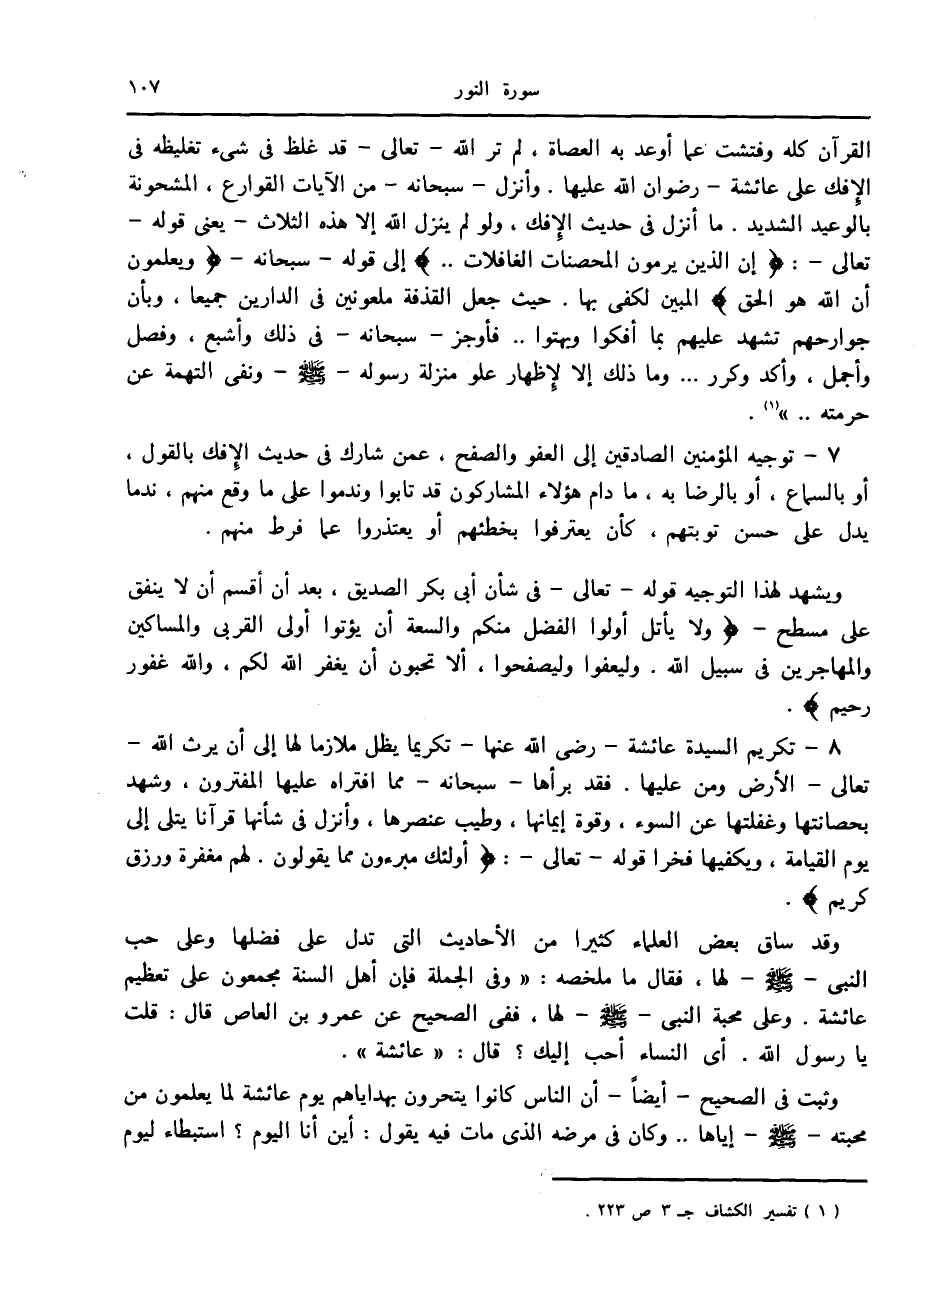 سورة النور
١٠٧
القرآن كله وفتشت عما أوعد به العصاة ، لم تر الله – تعالى – قد غلظ فى شىء تغليظه فى
الإفك على عائشة – رضوان الله عليها . وأنزل – سبحانه – من الآيات القوارع ، المشحونة
بالوعيد الشديد . ما أنزل فى حديث الإفك ، ولو لم ينزل الله إلا هذه الثلاث – يعنى قوله –
تعالى – : ﴿ إن الذين يرمون المحصنات الغافلات .. ﴾ إلى قوله – سبحانه – ﴿ ويعلمون
أن الله هو الحق ﴾ المبين لكفى بها . حيث جعل القذفة ملعونين فى الدارين جميعا ، وبأن
جوارحهم تشهد عليهم بما أفكوا وبهتوا .. فأوجز – سبحانه – فى ذلك وأشبع ، وفصل
وأجمل ، وأكد وكرر ... وما ذلك إلا لإظهار علو منزلة رسوله – ﷺ – ونفى التهمة عن
حرمته .. »(١) .
٧ – توجيه المؤمنين الصادقين إلى العفو والصفح ، عمن شارك فى حديث الإفك بالقول ،
أو بالسماع ، أو بالرضا به ، ما دام هؤلاء المشاركون قد تابوا وندموا على ما وقع منهم ، ندما
يدل على حسن توبتهم ، كأن يعترفوا بخطئهم أو يعتذروا عما فرط منهم .
ويشهد لهذا التوجيه قوله – تعالى – فى شأن أبى بكر الصديق ، بعد أن أقسم أن لا ينفق
على مسطح – ﴿ ولا يأتل أولوا الفضل منكم والسعة أن يؤتوا أولى القربى والمساكين
والمهاجرين فى سبيل الله . وليعفوا وليصفحوا ، ألا تحبون أن يغفر الله لكم ، والله غفور
رحيم ﴾ .
٨ – تكريم السيدة عائشة – رضى الله عنها – تكريما يظل ملازما لها إلى أن يرث الله –
تعالى – الأرض ومن عليها . فقد برأها – سبحانه – مما افتراه عليها المفترون ، وشهد
بحصانتها وغفلتها عن السوء ، وقوة إيمانها ، وطيب عنصرها ، وأنزل فى شأنها قرآنا يتلى إلى
يوم القيامة ، ويكفيها فخرا قوله – تعالى – : ﴿ أولئك مبرءون مما يقولون . لهم مغفرة ورزق
كريم ﴾ .
وقد ساق بعض العلماء كثيرا من الأحاديث التى تدل على فضلها وعلى حب
النبى – ﷺ – لها ، فقال ما ملخصه : « وفى الجملة فإن أهل السنة مجمعون على تعظيم
عائشة . وعلى محبة النبى – ﷺ – لها ، ففى الصحيح عن عمرو بن العاص قال : قلت
يا رسول الله . أى النساء أحب إليك ؟ قال : « عائشة » .
وثبت فى الصحيح – أيضاً – أن الناس كانوا يتحرون بهداياهم يوم عائشة لما يعلمون من
محبته – ﷺ – إياها .. وكان فى مرضه الذى مات فيه يقول : أين أنا اليوم ؟ استبطاء ليوم
( ١ ) تفسير الكشاف جـ ٣ ص ٢٢٣ .